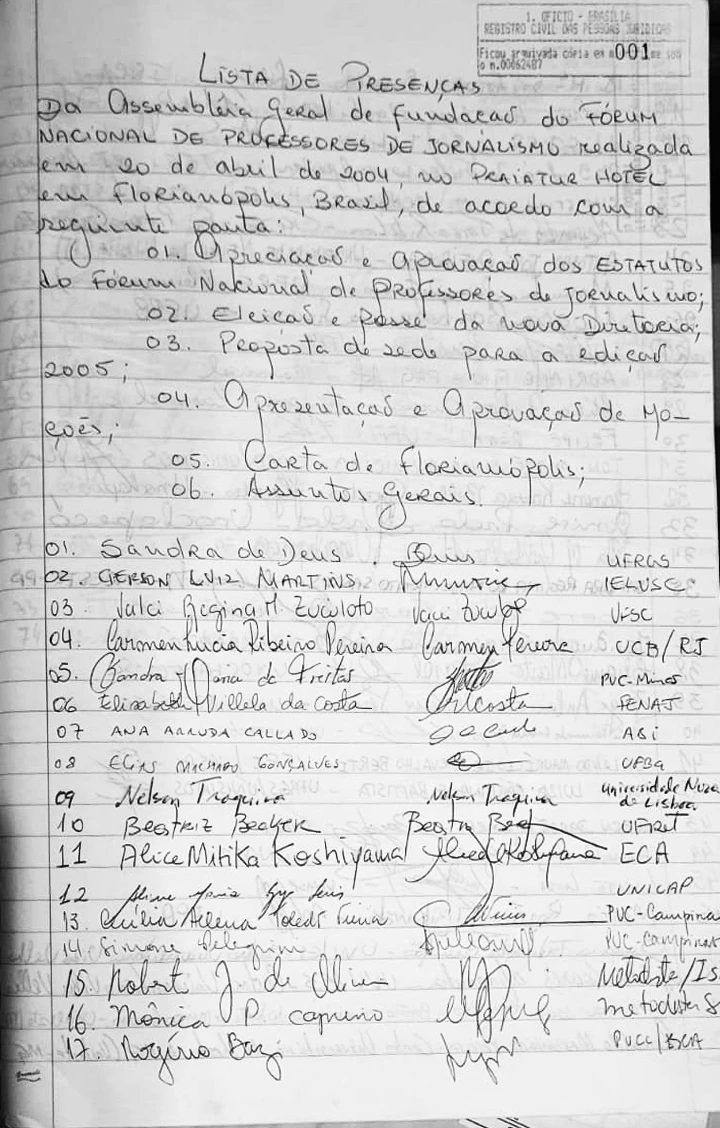 1. OFICIO - BRASILIA
REGISTRO CIVIL DAS PESSOAS JURIDICAS
Ficou arquivada cópia em
001
o n.00062487
LISTA DE PRESENÇAS
Da Assembléia Geral de fundação do FÓRUM
NACIONAL DE PROFESSORES DE JORNALISMO realizada
em 20 de abril de 2004, no PRAIATUR HOTEL
em Florianópolis, Brasil, de acordo com a
seguinte pauta:
01. Apreciação e aprovação dos ESTATUTOS
do Fórum Nacional de Professores de Jornalismo;
02. Eleição e posse da nova Diretoria;
03. Proposta de sede para a edição
2005;
04. Apresentação e Aprovação de Mo-
ções;
05. Carta de Florianópolis;
06. Assuntos Gerais.
01. Sandra de Deus. Deus UFRGS
02. GERSON LUIZ MARTINS, IELUSC
03. Valci Regina M. Zucoloto Valci Zucoloto UFSC
04. Carmen Lucia Ribeiro Pereira Carmen Pereira UCB/RJ
05. Sandra Maria de Freitas PUC-Minas
06 Elizabeth Villela da Costa Costa FENAJ
07 ANA ARRUDA CALLADO ABI
08 ELIAS MACHADO GONÇALVES UFBA
09 Nelson Traquina Nelson Traquina Universidade Nova
de Lisboa
10 Beatriz Becker UFRJ
11 Alice Mitika Koshiyama Alice Koshiyama ECA
12 Aline Maria UNICAP
13. Toledo PUC-Campinas
14. Simone PUC-Campinas
15. Robert J. de Oliveira Metodista
16. Mônica P. Caprino Metodista
17. Rogério Bazi PUCC